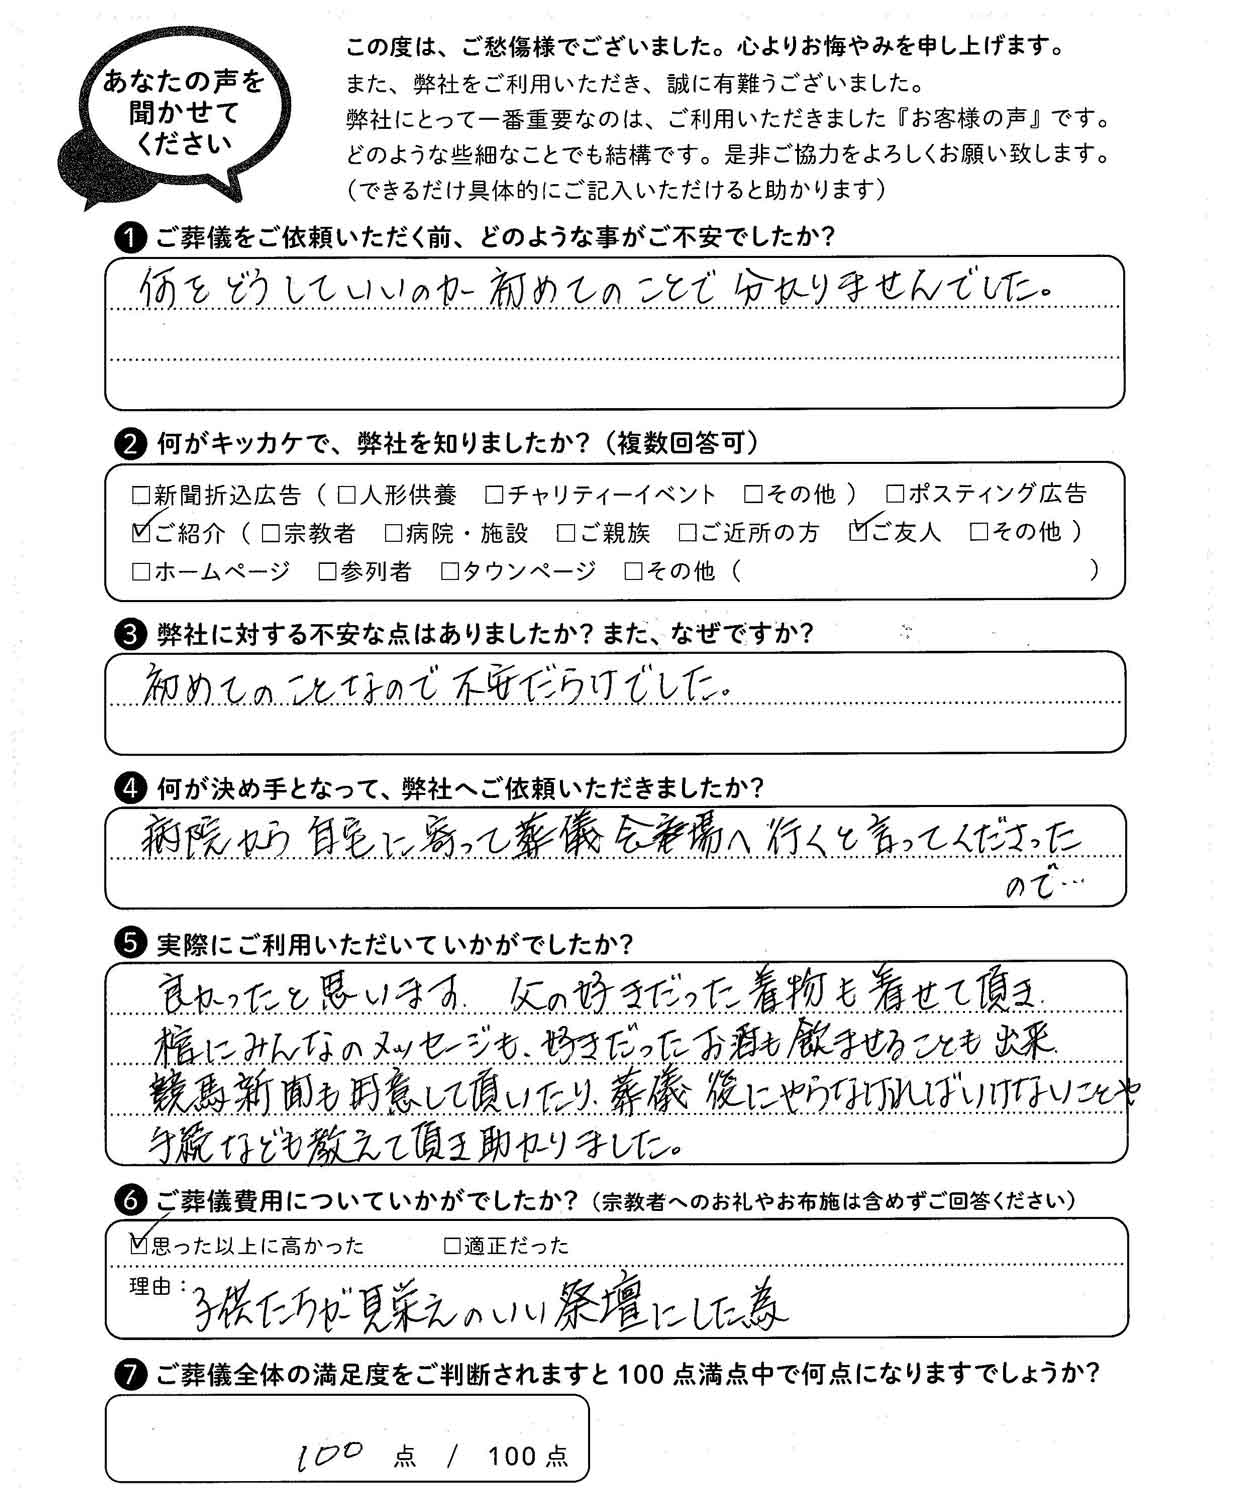 あなたの声を
聞かせて
ください
この度は、ご愁傷様でございました。心よりお悔やみを申し上げます。
また、弊社をご利用いただき、誠に有難うございました。
弊社にとって一番重要なのは、ご利用いただきました『お客様の声』です。
どのような些細なことでも結構です。是非ご協力をよろしくお願い致します。
（できるだけ具体的にご記入いただけると助かります）
❶ ご葬儀をご依頼いただく前、どのような事がご不安でしたか？
何をどうしていいのか初めてのことで分かりませんでした。
❷ 何がキッカケで、弊社を知りましたか？（複数回答可）
□新聞折込広告（ □人形供養 □チャリティーイベント □その他 ） □ポスティング広告
☑ご紹介（ □宗教者 □病院・施設 □ご親族 □ご近所の方 ☑ご友人 □その他 ）
□ホームページ □参列者 □タウンページ □その他（ ）
❸ 弊社に対する不安な点はありましたか？また、なぜですか？
初めてのことなので不安だらけでした。
❹ 何が決め手となって、弊社へご依頼いただきましたか？
病院から自宅に寄って葬儀会場へ行くと言ってくださった
ので…
❺ 実際にご利用いただいていかがでしたか？
良かったと思います。父の好きだった着物も着せて頂き、
棺にみんなのメッセージも、好きだったお酒も飲ませることも出来、
競馬新聞も用意して頂いたり、葬儀後にやらなければいけないことや
手続なども教えて頂き助かりました。
❻ ご葬儀費用についていかがでしたか？（宗教者へのお礼やお布施は含めずご回答ください）
☑思った以上に高かった □適正だった
理由：子供たちが見栄えのいい祭壇にした為
❼ ご葬儀全体の満足度をご判断されますと100点満点中で何点になりますでしょうか？
100 点 / 100点